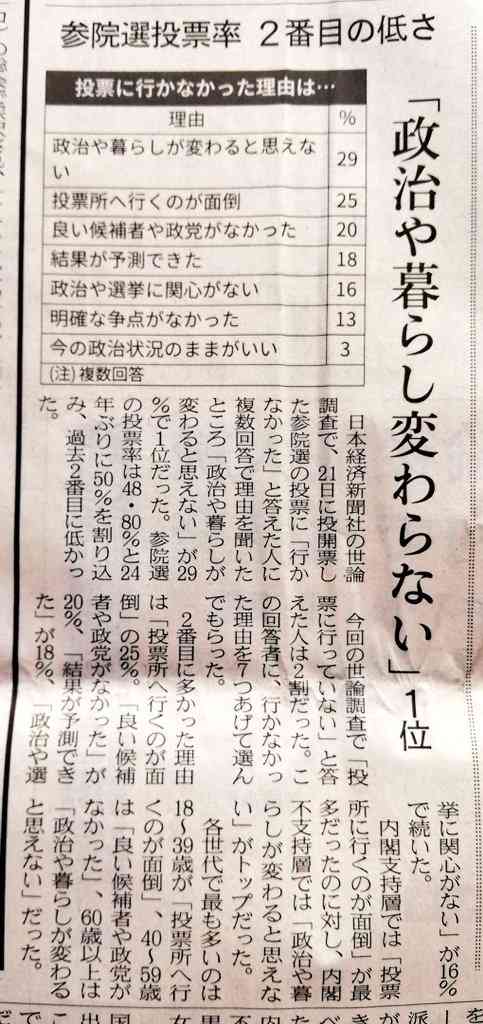 参院選投票率 2番目の低さ
「政治や暮らし変わらない」1位
投票に行かなかった理由は…
理由 %
政治や暮らしが変わると思えな
い 29
投票所へ行くのが面倒 25
良い候補者や政党がなかった 20
結果が予測できた 18
政治や選挙に関心がない 16
明確な争点がなかった 13
今の政治状況のままがいい 3
(注)複数回答
日本経済新聞社の世論
調査で、21日に投開票し
た参院選の投票に「行か
なかった」と答えた人に
複数回答で理由を聞いた
ところ「政治や暮らしが
変わると思えない」が29
%で1位だった。参院選
の投票率は48・80%と24
年ぶりに50%を割り込
み、過去2番目に低かっ
た。
今回の世論調査で「投
票に行っていない」と答
えた人は2割だった。こ
の回答者に、行かなかっ
た理由を7つあげて選ん
でもらった。
2番目に多かった理由
は「投票所へ行くのが面
倒」の25%。「良い候補
者や政党がなかった」が
20%、「結果が予測でき
た」が18%、「政治や選
挙に関心がない」が16%
で続いた。
内閣支持層では「投票
所に行くのが面倒」が最
多だったのに対し、内閣
不支持層では「政治や暮
らしが変わると思えな
い」がトップだった。
各世代で最も多いのは
18〜39歳が「投票所へ行
くのが面倒」、40〜59歳
は「良い候補者や政党が
なかった」、60歳以上は
「政治や暮らしが変わる
と思えない」だった。